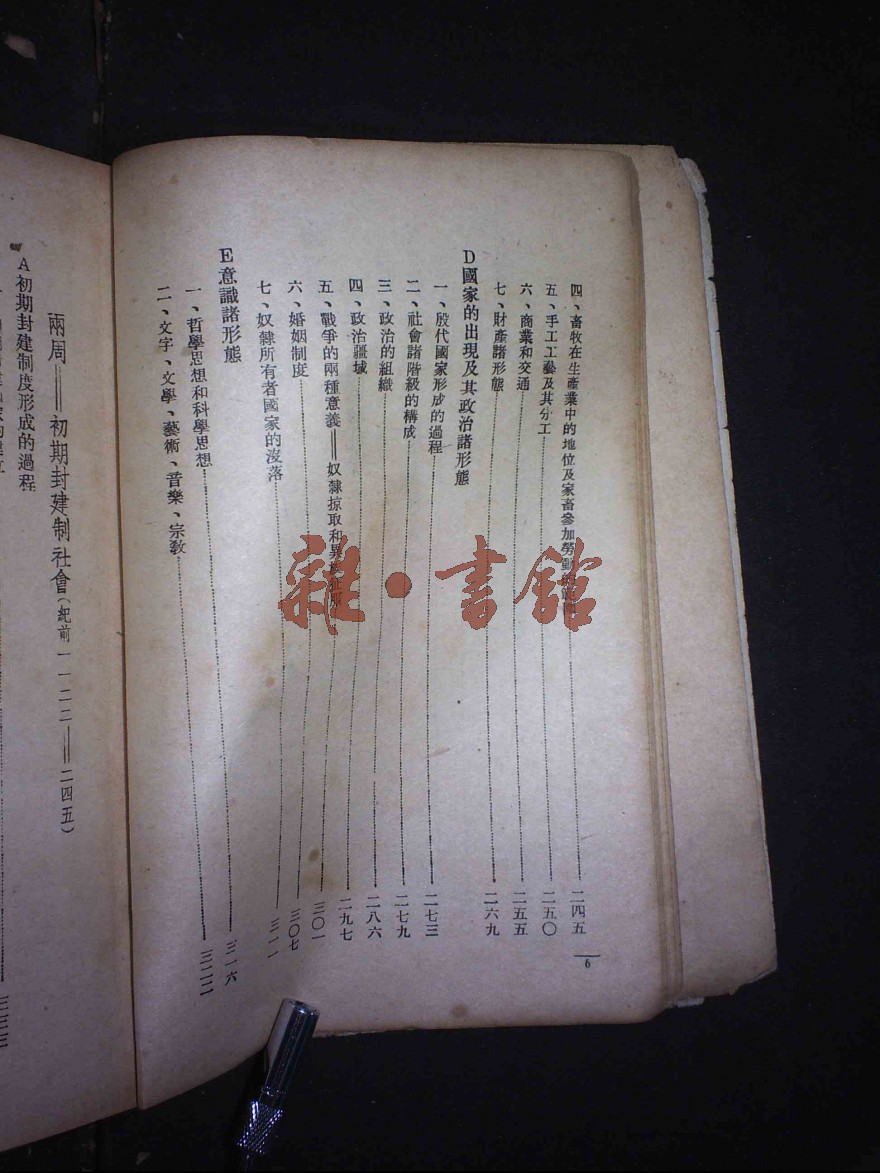 四、畜牧在生產業中的地位及家畜參加勞動 二四五
五、手工工藝及其分工 二五〇
六、商業和交通 二五五
七、財產諸形態 二六九
D國家的出現及其政治諸形態
一、殷代國家形成的過程 二七三
二、社會諸階級的構成 二七九
三、政治的組織 二八六
四、政治疆域 二九七
五、戰爭的兩種意義——奴隸掠取和異 三〇一
六、婚姻制度 三〇七
七、奴隸所有者國家的沒落 三一一
E意識諸形態
一、哲學思想和科學思想 三一六
二、文字、文學、藝術、音樂、宗教 三二二
6
兩周——初期封建制社會(紀前一一二二——二四五)
A初期封建制度形成的過程
雜·書館